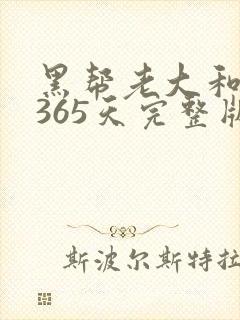 黑帮老大和
365天完整版
斯波尔斯特拉